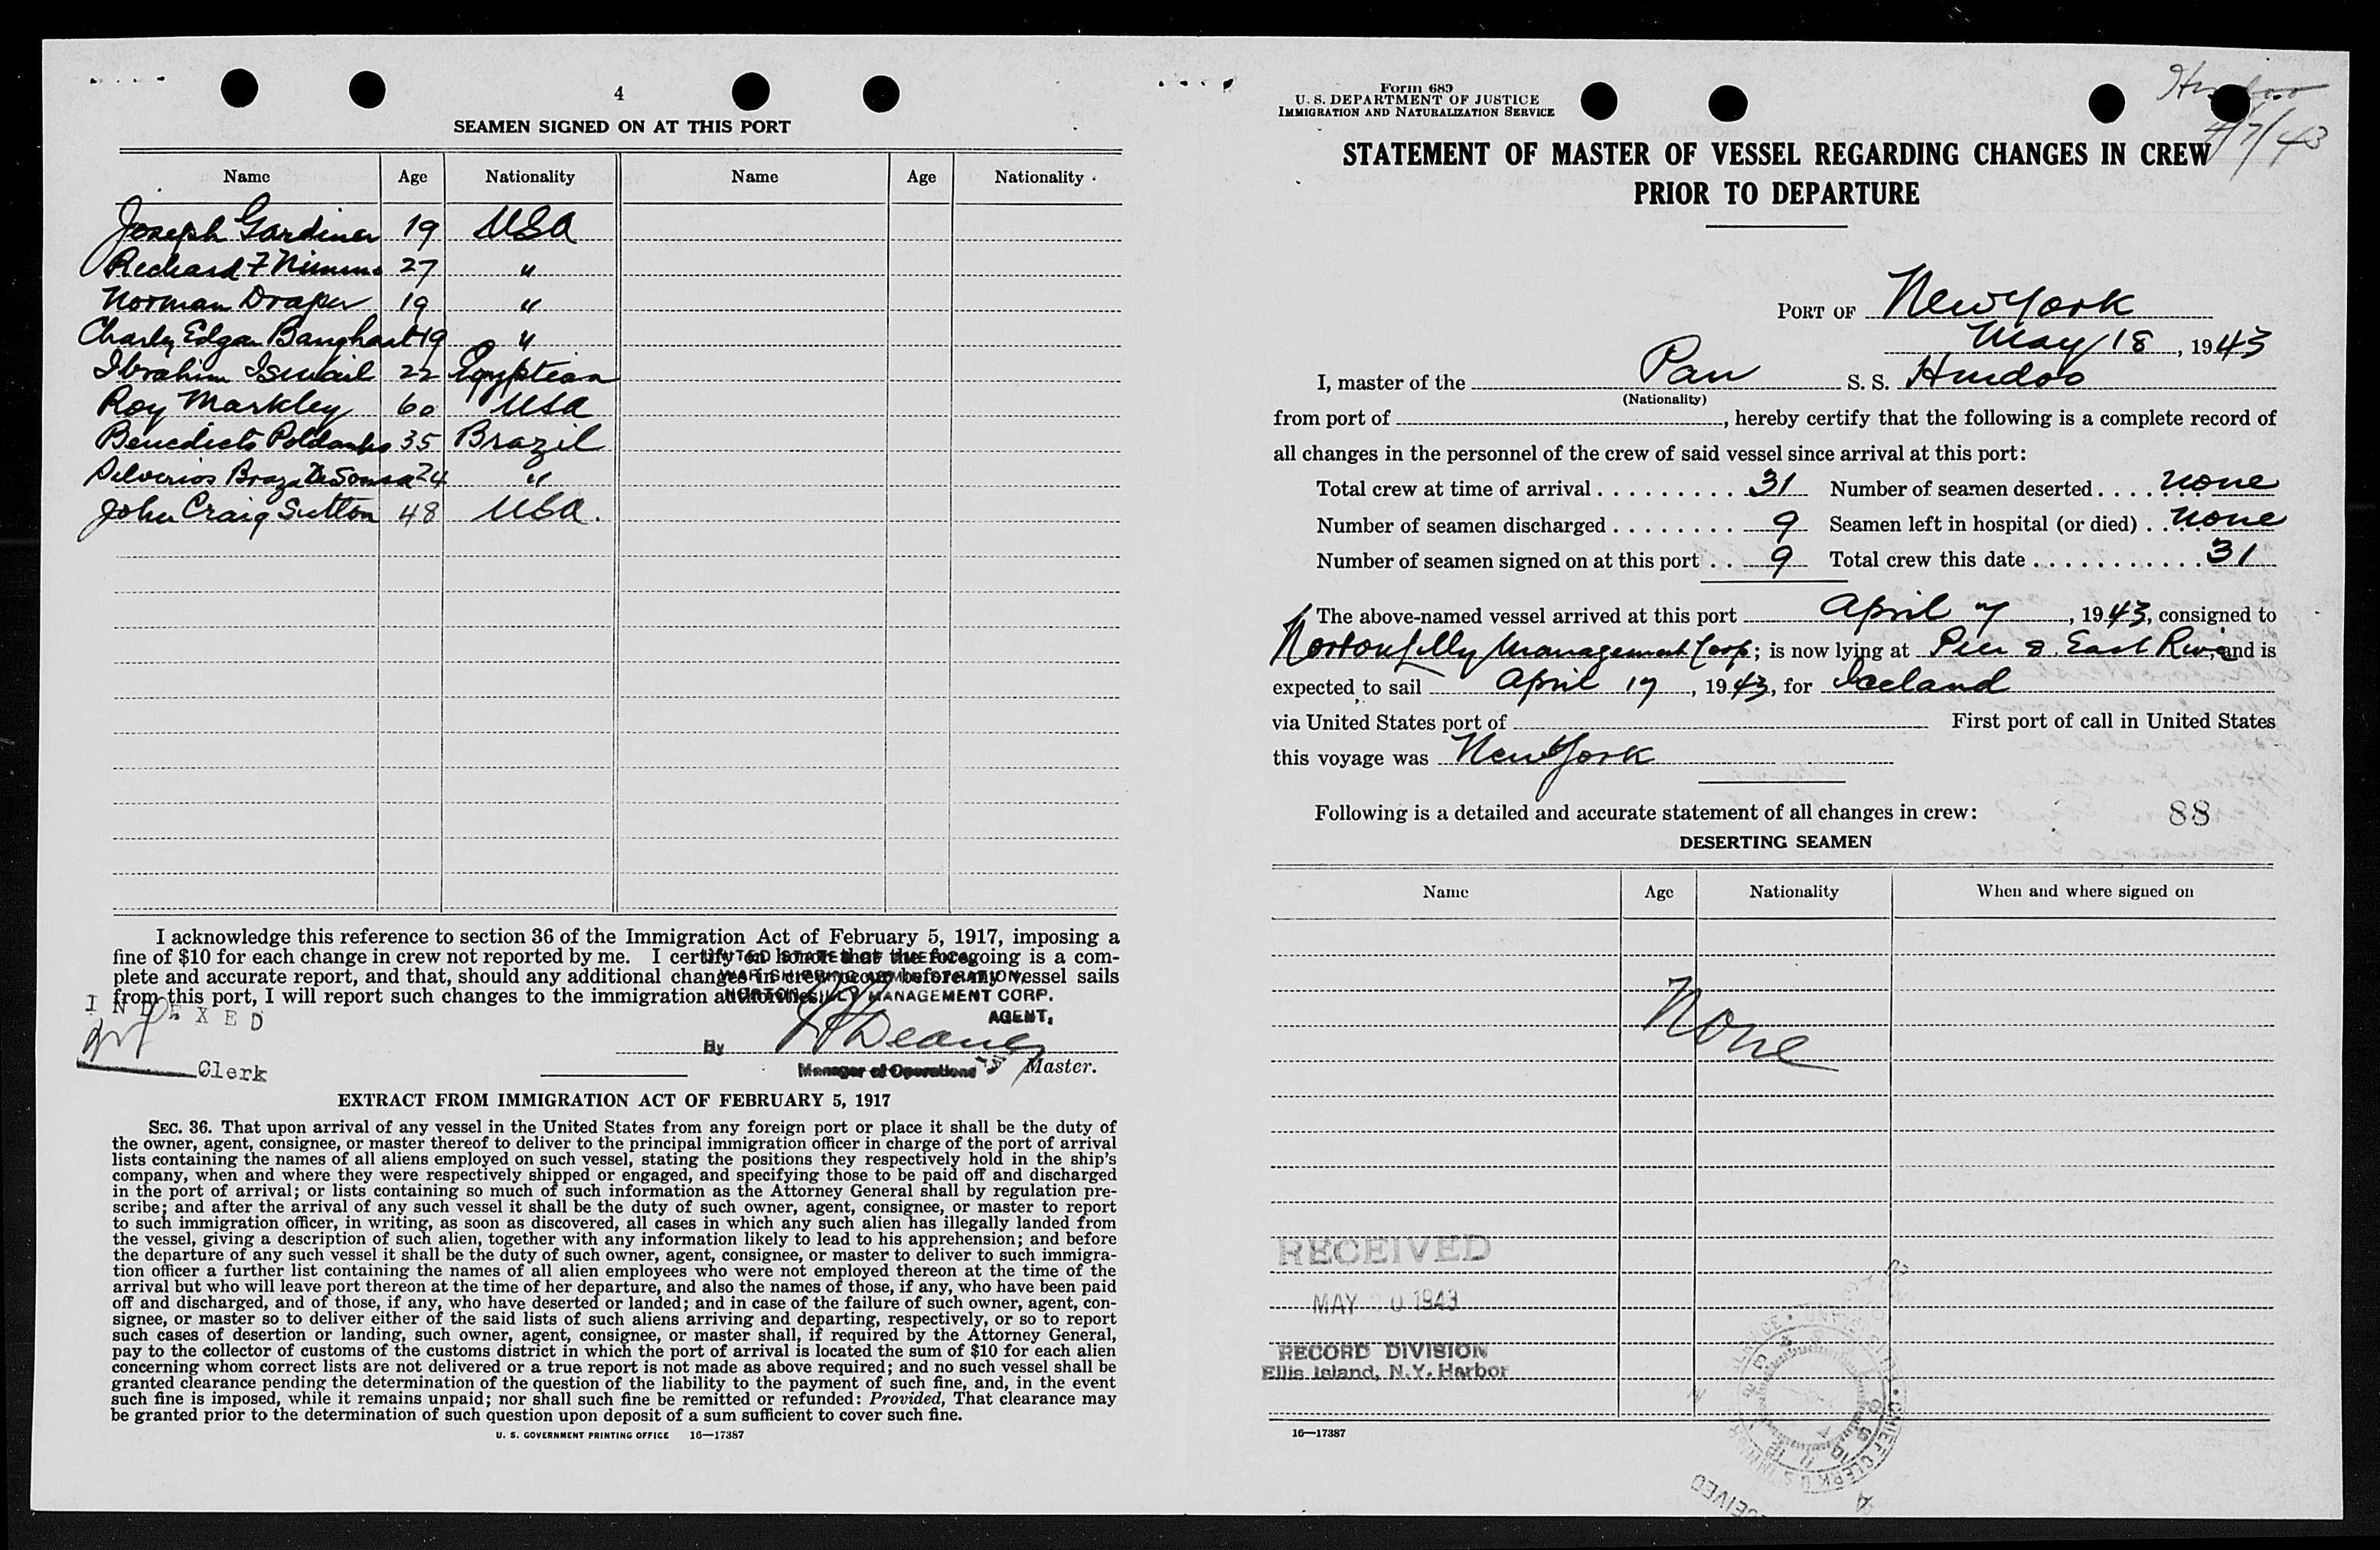 4
SEAMEN SIGNED ON AT THIS PORT
Name Age Nationality Name Age Nationality
Joseph Gardiner 19 USA
Richard F Nimmo 27 "
Norman Draper 19 "
Charley Edgar Banghart 19 "
Ibrahim Ismail 22 Egyptian
Roy Markley 60 USA
Benedicto 35 Brazil
Braz De Sousa 24 "
John Craig Sutton 48 USA.
I acknowledge this reference to section 36 of the Immigration Act of February 5, 1917, imposing a
fine of $10 for each change in crew not reported by me. I certify on honor that the foregoing is a com-
plete and accurate report, and that, should any additional changes in crew occur before my vessel sails
from this port, I will report such changes to the immigration authorities.
UNITED STATES OF AMERICA
WAR SHIPPING ADMINISTRATION
NORTON LILLY MANAGEMENT CORP.
AGENT,
INDEXED
Clerk
By Deane
Manager of Operations Master.
EXTRACT FROM IMMIGRATION ACT OF FEBRUARY 5, 1917
SEC. 36. That upon arrival of any vessel in the United States from any foreign port or place it shall be the duty of
the owner, agent, consignee, or master thereof to deliver to the principal immigration officer in charge of the port of arrival
lists containing the names of all aliens employed on such vessel, stating the positions they respectively hold in the ship's
company, when and where they were respectively shipped or engaged, and specifying those to be paid off and discharged
in the port of arrival; or lists containing so much of such information as the Attorney General shall by regulation pre-
scribe; and after the arrival of any such vessel it shall be the duty of such owner, agent, consignee, or master to report
to such immigration officer, in writing, as soon as discovered, all cases in which any such alien has illegally landed from
the vessel, giving a description of such alien, together with any information likely to lead to his apprehension; and before
the departure of any such vessel it shall be the duty of such owner, agent, consignee, or master to deliver to such immigra-
tion officer a further list containing the names of all alien employees who were not employed thereon at the time of the
arrival but who will leave port thereon at the time of her departure, and also the names of those, if any, who have been paid
off and discharged, and of those, if any, who have deserted or landed; and in case of the failure of such owner, agent, con-
signee, or master so to deliver either of the said lists of such aliens arriving and departing, respectively, or so to report
such cases of desertion or landing, such owner, agent, consignee, or master shall, if required by the Attorney General,
pay to the collector of customs of the customs district in which the port of arrival is located the sum of $10 for each alien
concerning whom correct lists are not delivered or a true report is not made as above required; and no such vessel shall be
granted clearance pending the determination of the question of the liability to the payment of such fine, and, in the event
such fine is imposed, while it remains unpaid; nor shall such fine be remitted or refunded: Provided, That clearance may
be granted prior to the determination of such question upon deposit of a sum sufficient to cover such fine.
U. S. GOVERNMENT PRINTING OFFICE 16—17387
Form 689
U. S. DEPARTMENT OF JUSTICE
IMMIGRATION AND NATURALIZATION SERVICE
Hindoo
4/7/43
STATEMENT OF MASTER OF VESSEL REGARDING CHANGES IN CREW
PRIOR TO DEPARTURE
PORT OF New York
May 18, 1943
I, master of the Pan S. S. Hindoo
(Nationality)
from port of , hereby certify that the following is a complete record of
all changes in the personnel of the crew of said vessel since arrival at this port:
Total crew at time of arrival 31 Number of seamen deserted none
Number of seamen discharged 9 Seamen left in hospital (or died) none
Number of seamen signed on at this port 9 Total crew this date 31
The above-named vessel arrived at this port April 7, 1943, consigned to
Norton Lilly Management Corp; is now lying at Pier 8 East River, and is
expected to sail April 17, 1943, for Iceland
via United States port of First port of call in United States
this voyage was New York
Following is a detailed and accurate statement of all changes in crew: 88
DESERTING SEAMEN
Name Age Nationality When and where signed on
None
RECEIVED
MAY 20 1943
RECORD DIVISION
Ellis Island, N.Y. Harbor
CHIEF CLERK U.S.
RECEIVED
16—17387